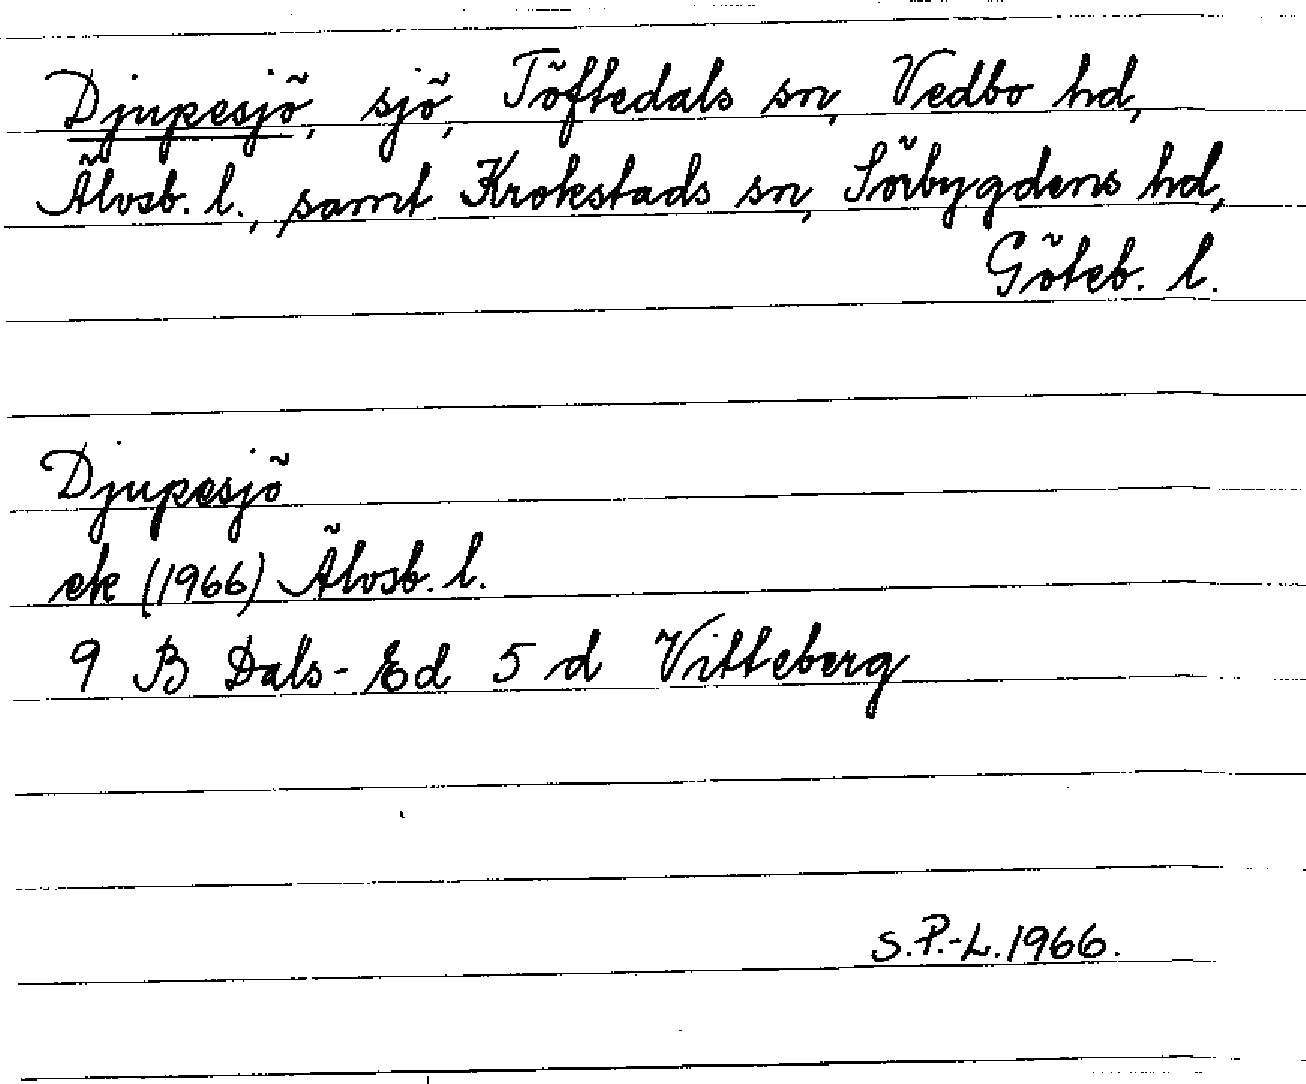 Djupesjö, sjö, Töftedals sn, Vedbo hd,
Älvsb. l., samt Krokstads sn, Sörbygdens hd,
Göteb. l.
Djupesjö
ek (1966) Älvsb. l.
9 B Dals-Ed 5 d Vitteberg
S.P.-L. 1966.